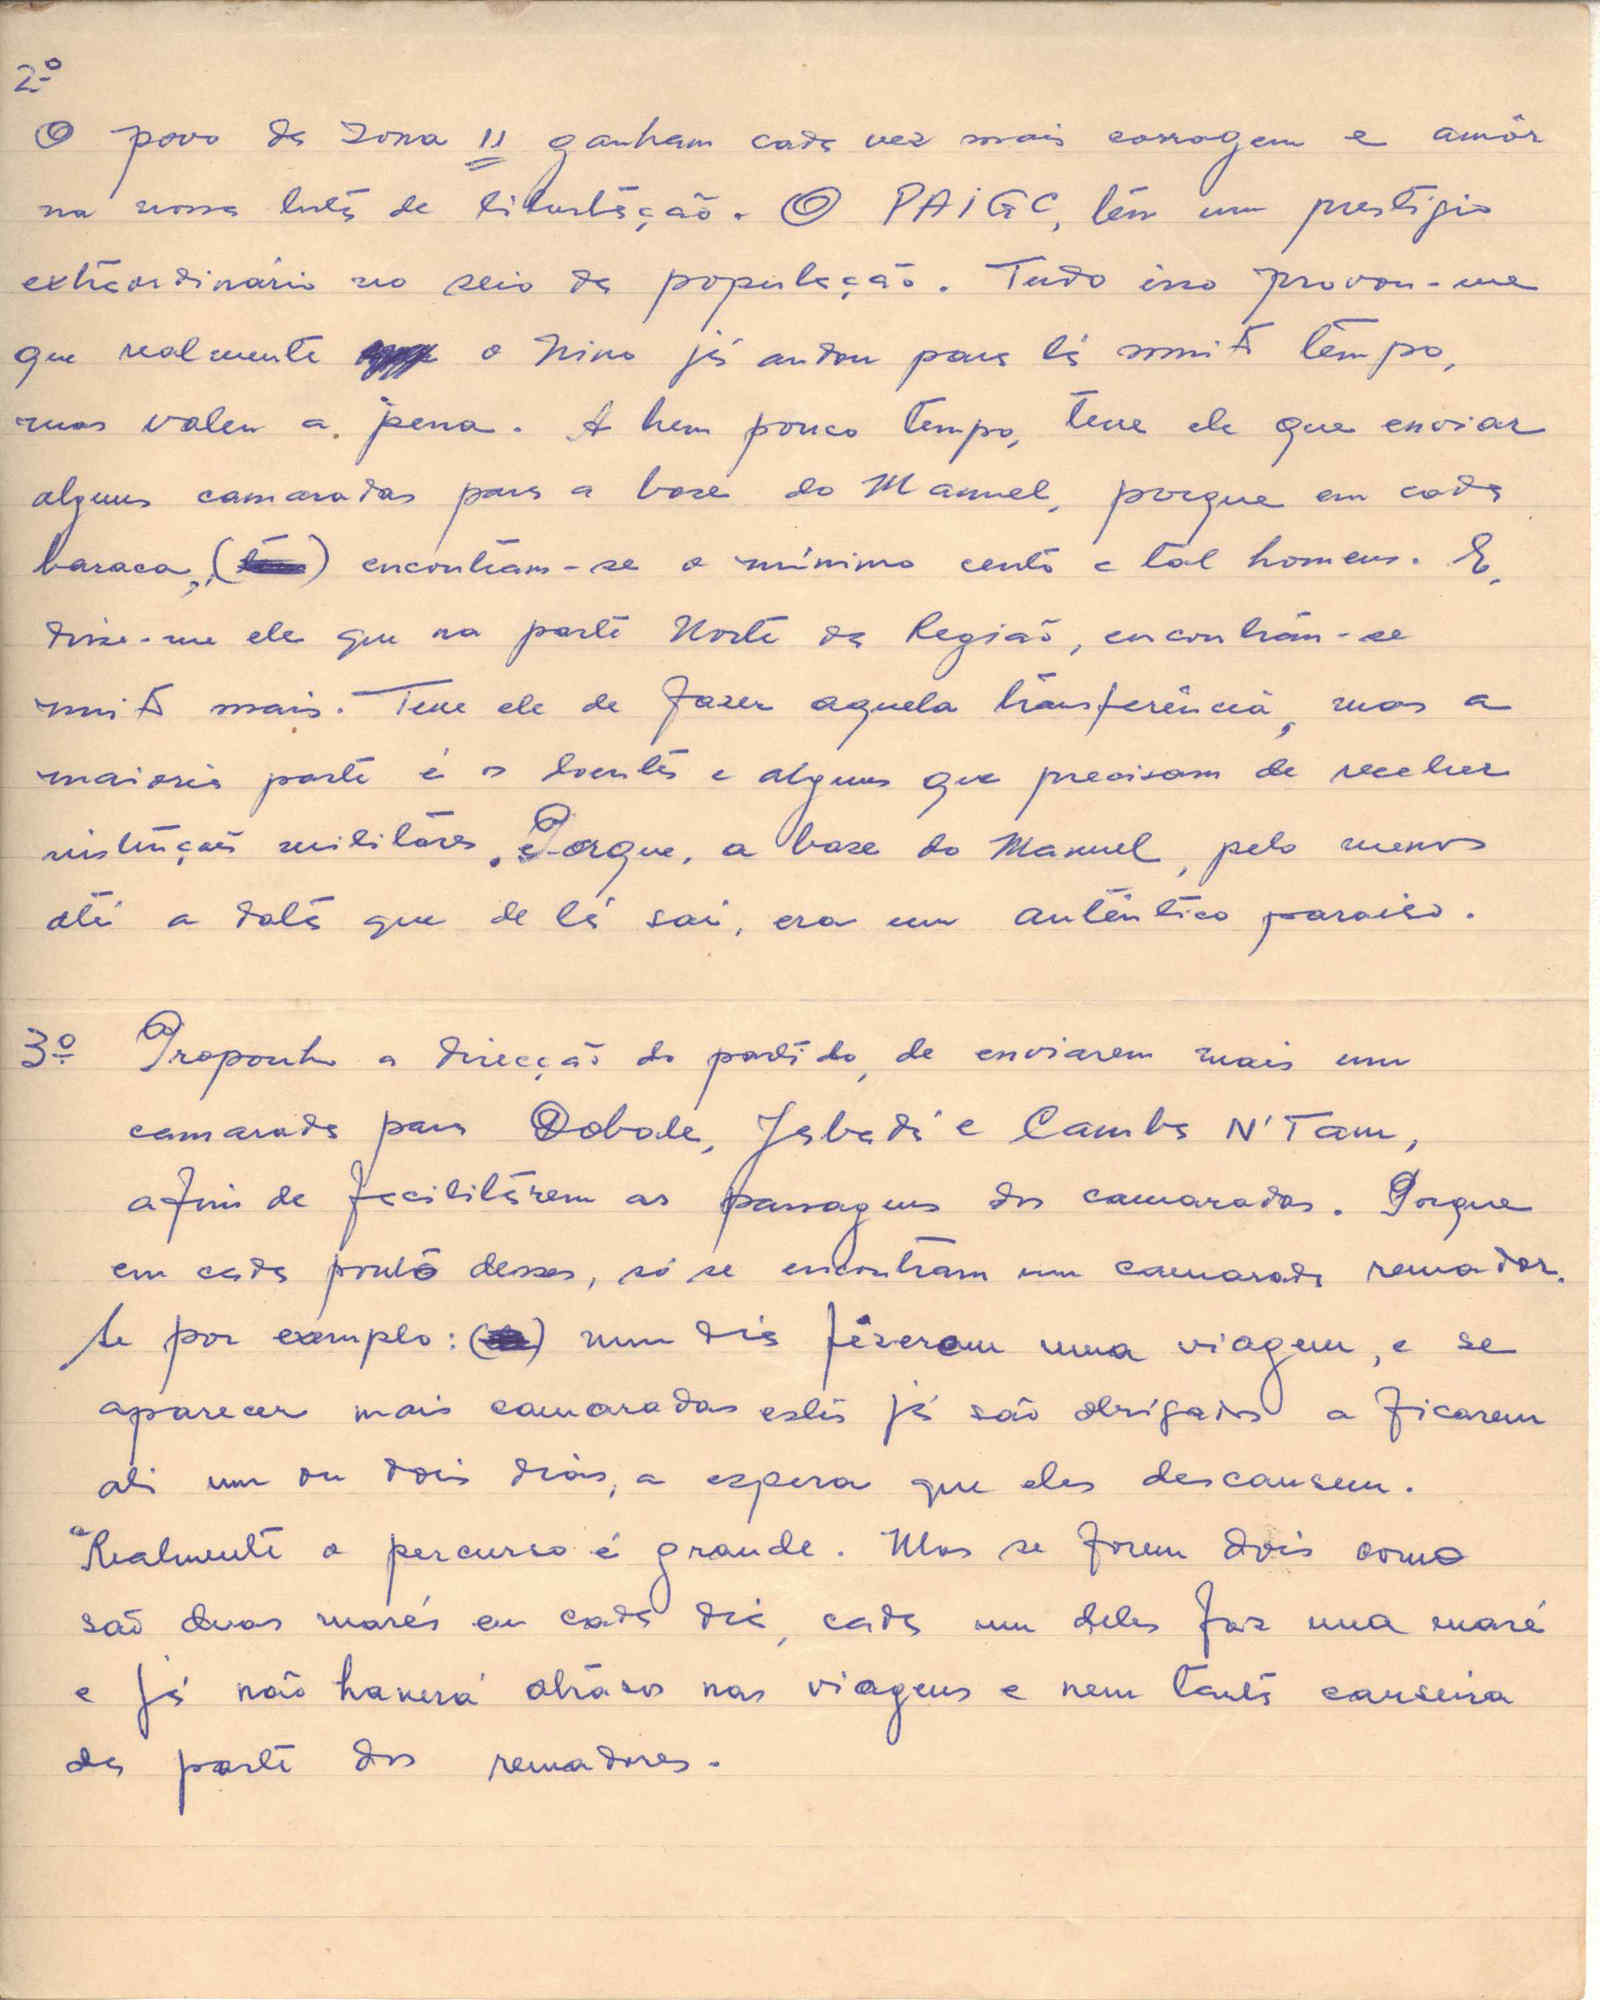 2º
O povo da zona 11 ganham cada vez mais corragem e amôr
na nossa luta de libertação. O PAIGC, têm um prestigio
extraordinário no seio da população. Tudo isso provou-me
que realmente o Nino já andou para lá muito têmpo,
mas valeu a pena. A bem pouco tempo, teve ele que enviar
alguns camaradas para a base do Manuel, porque em cada
baraca, encontram-se o mínimo cento e tal homens. E,
disse-me ele que na parte Norte da Região, encontram-se
muito mais. Teve ele de fazer aquela transferência, mas a
maioria parte é os doentes e alguns que precisam de receber
instruções militares. Porque, a base do Manuel, pelo menos
até a data que de lá sai, era um autêntico paraiso.
3º Proponho a direcção do partido, de enviarem mais um
camarada para Dobale, Jabadá e Camba N'Tam,
afim de facilitárem as passagens dos camaradas. Porque
em cada ponto desses, só se encontram um camarada remador.
Se por exemplo: num dia fêzeram uma viagem, e se
aparecer mais camaradas estes já são obrigados a ficarem
ali um ou dois dias, a espera que eles descansem.
Realmente o percurso é grande. Mas se forem dois como
são duas marés em cada dia, cada um deles faz uma maré
e já não haverá atrasos nas viagens e nem tanta canseira
da parte dos remadores.